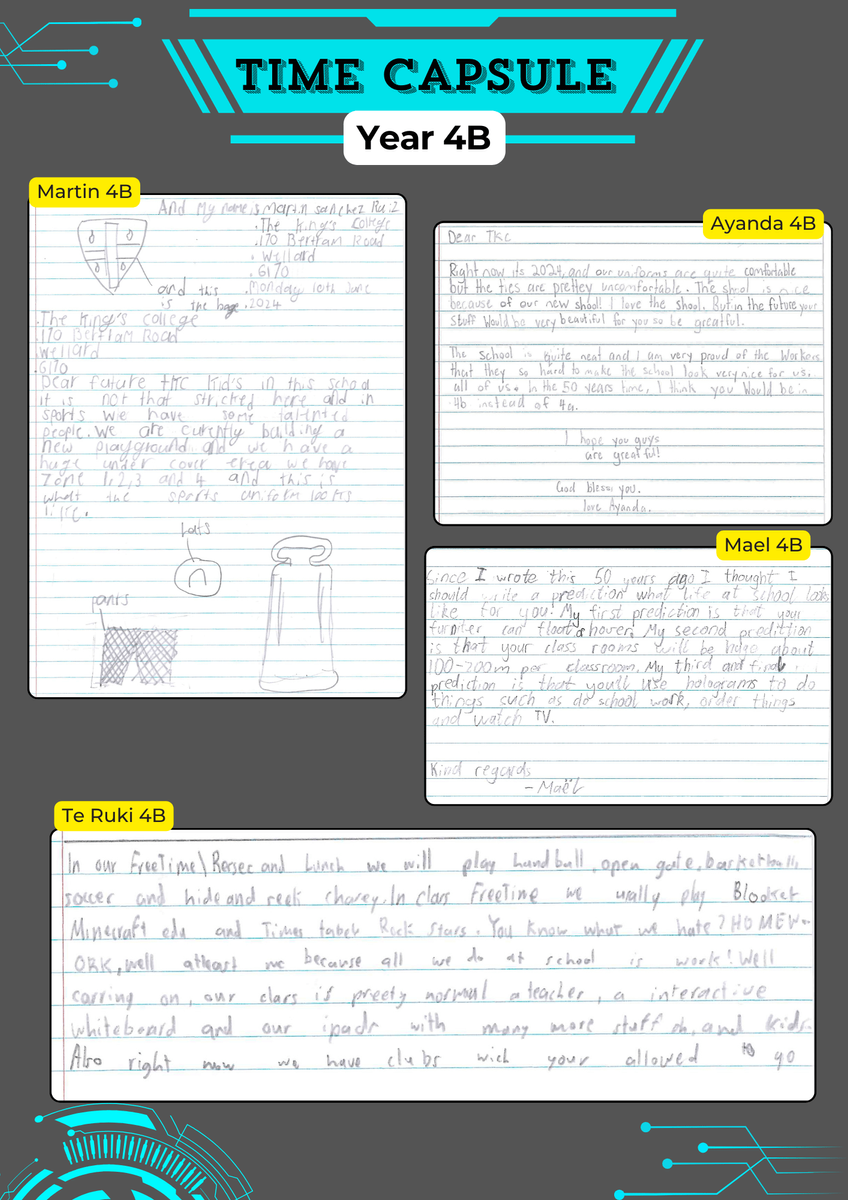 TIME CAPSULE
Year 4B
Martin 4B
And My name is Martin sanchez Ruiz
.The King's College
.170 Bertram Road
. Wellard
. 6170
.Monday 10th June
.2024
and this
is the bage
.The King's college
.170 Bertram Road
.Wellard
.6170
Dear future tkc kid's in this school
it is not that stricked here and in
sports we have some talinted
people. We are curently building a
new playground and we have a
huge under cover erea we have
zone 1, 2, 3 and 4 and this is
what the sports uniform looks
like.
hats
pants
Ayanda 4B
Dear Tkc
Right now its 2024, and our uniforms are quite comfortable
but the ties are prettey uncomfortable. The shool is nice
because of our new shool! I love the shool. But in the future your
stuff would be very beautiful for you so be greatful.
The school is quite neat and I am very proud of the workers
that they so hard to make the school look very nice for us,
all of us. In the 50 years time, I think you would be in
4b instead of 4a.
I hope you guys
are greatful!
God bless you.
love Ayanda.
Mael 4B
Since I wrote this 50 years ago I thought I
should write a prediction what life at school looks
like for you! My first prediction is that your
furniter can float or hover. My second predittion
is that your class rooms will be huge, about
100-200m per classroom. My third and final
prediction is that youll use holograms to do
things such as do school work, order things
and watch TV.
Kind regards
- Maël
Te Ruki 4B
In our FreeTime\Reesec and Lunch we will play handball, open gate, basketball,
soccer and hide and seek chasey. In class FreeTime we usally play Blooket
Minecraft edu and Times tabels Rock Stars. You know what we hate? HOMEW-
ORK, well atleast me because all we do at school is work! Well
carring on, our class is preety normal a teacher, a interactive
whiteboard and our ipads with many more stuff oh, and kids.
Also right now we have clubs wich your allowed to go